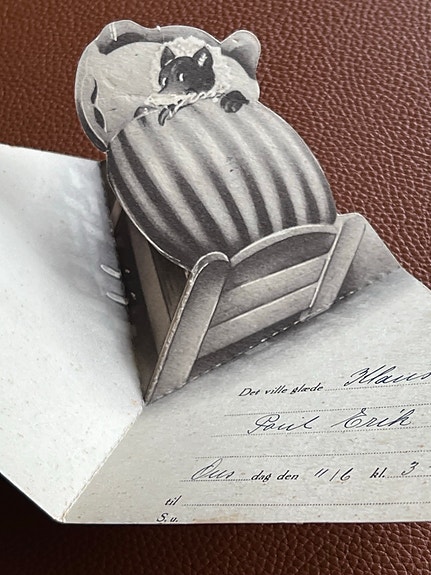 Det ville glæde Klaus
Poul Erik
Ons dag den 11/6 kl. 3
til
S. u.